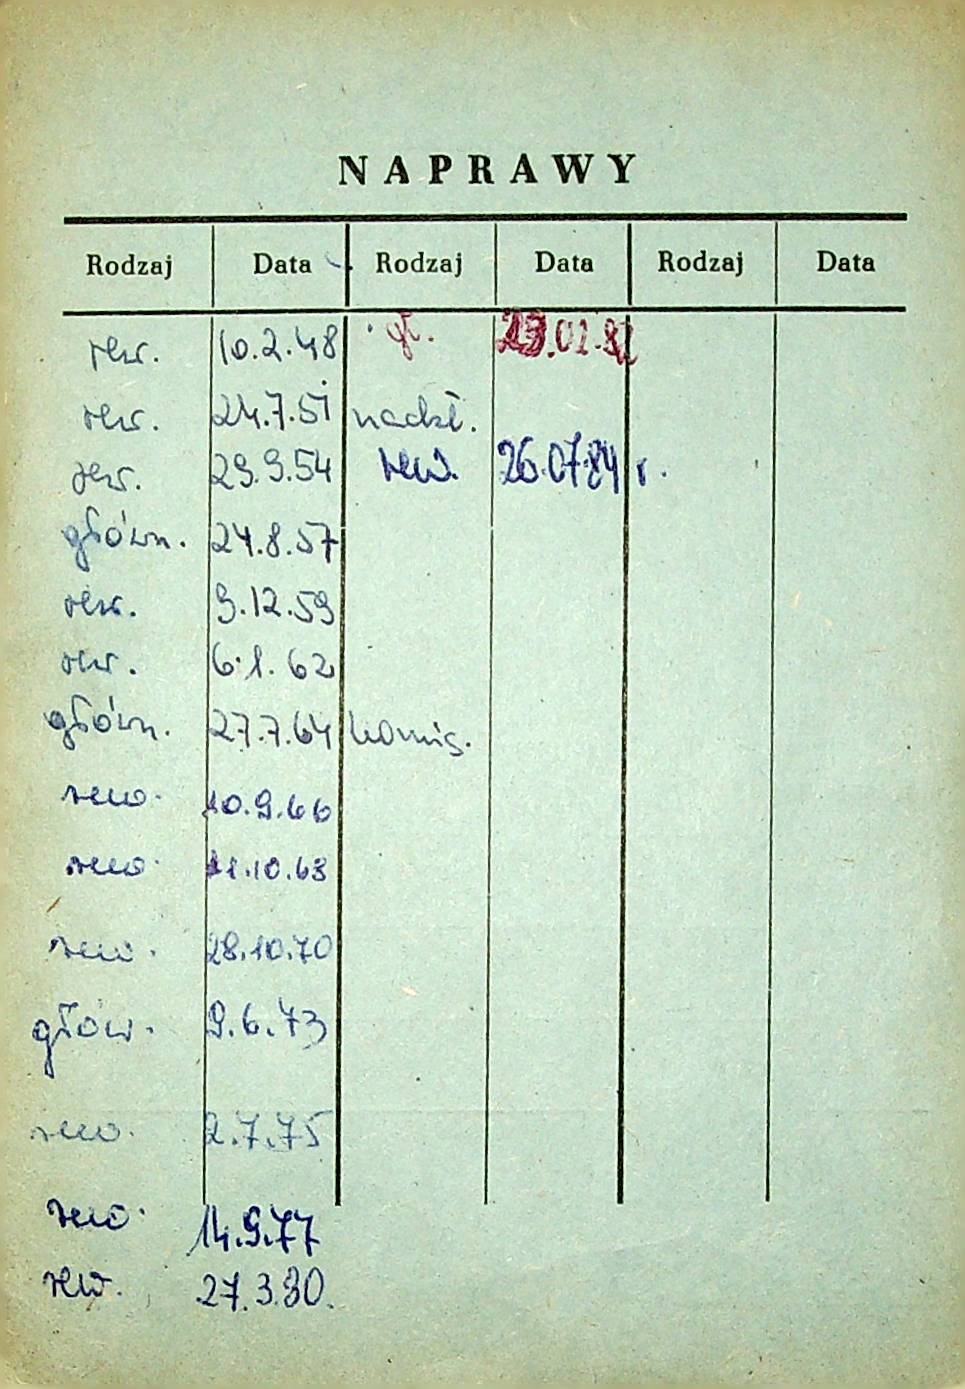 NAPRAWY
Rodzaj Data Rodzaj Data Rodzaj Data
rew. 10.2.48 gł. 01.82
rew. 24.7.51 nadkł.
rew. 29.9.54 rew. 26.07.84 r.
główn. 24.8.57
rew. 9.12.59
rew. 6.1.62
główn. 27.7.64 komis.
rew. 10.9.66
rew. 11.10.68
rew. 28.10.70
głów. 9.6.73
rew. 2.7.75
rew. 14.9.77
rew. 27.3.80.